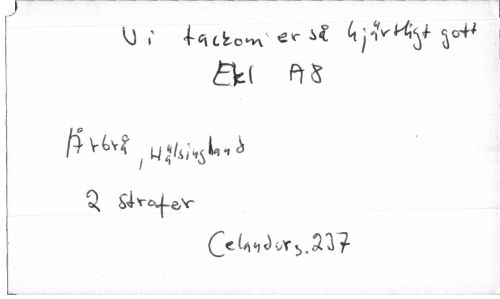 Vi tackom er så hjärtligt gott
Ekl A8
Arbrå, Hälsingland
2 strofer
Celander s. 237